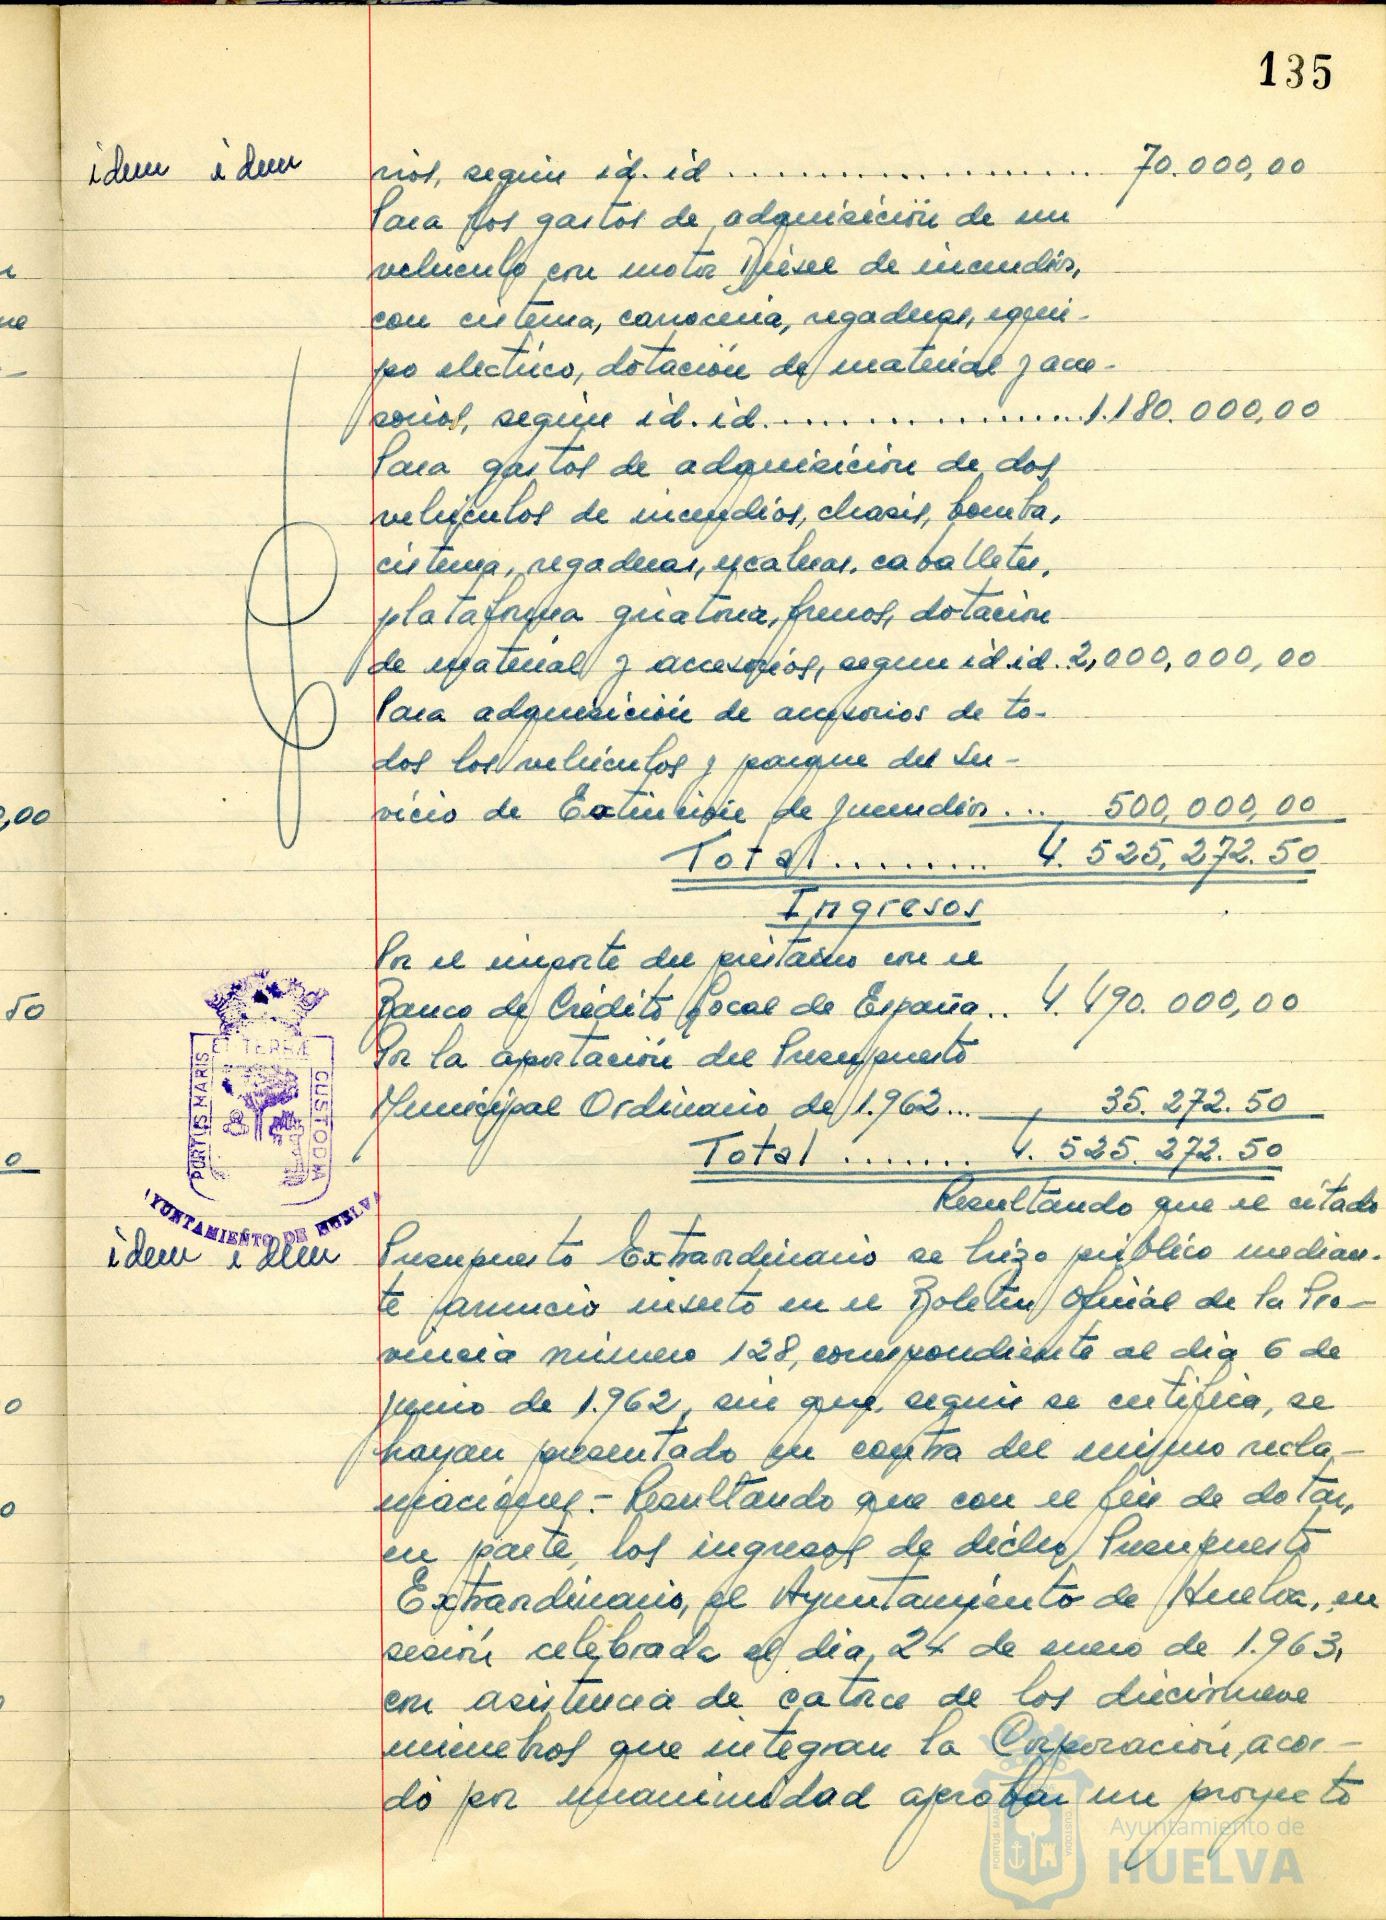 135
idem idem
rios, según id. id .................. 70.000,00
Para los gastos de adquisición de un
vehículo con motor Diésel de incendios,
con cisterna, carrocería, regaderas, equi-
po eléctrico, dotación de material y acce-
sorios, según id. id.................1.180.000,00
Para gastos de adquisición de dos
vehículos de incendios, chasis, bomba,
cisterna, regaderas, escaleras, caballetes,
plataforma giratoria, frenos, dotación
de material y accesorios, según id. id. 2,000,000,00
Para adquisición de accesorios de to-
dos los vehículos y parque del Ser-
vicio de Extinción de Incendios ... 500,000,00
Total ........ 4.525,272.50
Ingresos
Por el importe del préstamo con el
Banco de Crédito Local de España.. 4.490.000,00
Por la aportación del Presupuesto
Municipal Ordinario de 1.962... 35.272.50
Total ....... 4.525.272.50
PORTUS MARIS
ET TERRÆ
CUSTODIA
AYUNTAMIENTO DE HUELVA
Resultando que el citado
idem idem
Presupuesto Extraordinario se hizo público median-
te anuncio inserto en el Boletín Oficial de la Pro-
vincia número 128, correspondiente al día 6 de
junio de 1.962, sin que, según se certifica, se
hayan presentado en contra del mismo recla-
maciones.- Resultando que con el fin de dotar,
en parte, los ingresos de dicho Presupuesto
Extraordinario, el Ayuntamiento de Huelva, en
sesión celebrada el día 24 de enero de 1.963,
con asistencia de catorce de los diecinueve
miembros que integran la Corporación, acor-
dó por unanimidad aprobar un proyecto
Ayuntamiento de
HUELVA